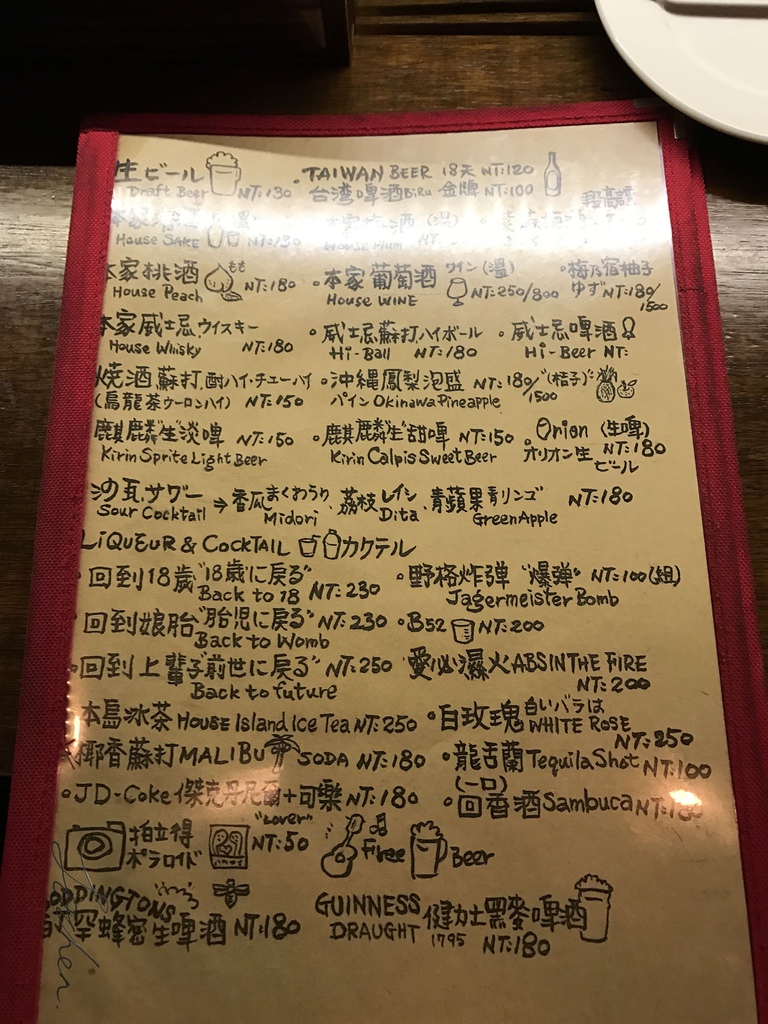 生ビール TAIWAN BEER 18天 NT:120
Draft Beer NT:130 台湾啤酒BiRu 金牌 NT:100
House SAKE NT:130 House Plum NT:
本家桃酒 もも NT:180 ・本家葡萄酒 ワイン(溫) ・梅乃宿柚子
House Peach House WINE NT:250/800 ゆず NT:180/1500
本家威士忌.ウイスキー ・威士忌.蘇打.ハイボール ・威士忌啤酒
House Whisky NT:180 Hi-Ball NT:180 Hi-Beer NT:
焼酒蘇打.酎ハイ・チューハイ ・沖縄鳳梨泡盛 NT:180/1500 "(桔子)"
(烏龍茶ウーロンハイ) NT:150 パイン Okinawa Pineapple
麒麟"生"淡啤 NT:150 ・麒麟"生"甜啤 NT:150 Orion (生啤)
Kirin Sprite Light Beer Kirin Calpis Sweet Beer オリオン生ビール NT:180
沙瓦.サワー → 香瓜まくわうり.荔枝レイシ.青蘋果青リンゴ NT:180
Sour Cocktail Midori Dita Green Apple
LiQUEUR & COCKTAIL カクテル
・回到18歲"18歳に戻る" NT:230 ・野格炸弹 "爆弾" NT:100(組)
Back to 18 Jagermeister Bomb
・回到娘胎"胎児に戻る" NT:230 ・B52 NT:200
Back to Womb
・回到上輩子"前世に戻る" NT:250 愛必濕火ABSINTHE FIRE
Back to future NT:200
本島冰茶 HOUSE Island Ice Tea NT:250 ・白玫瑰 白いバラは WHITE ROSE
NT:250
椰香蘇打 MALIBU SODA NT:180 ・龍舌蘭 Tequila Shot NT:100
(一口)
・JD-Coke 傑克丹尼爾+可樂 NT:180 ・回香酒 Sambuca NT:180
拍立得 "Lover" NT:50 Free Beer
ポラロイド
BODDINGTONS GUINNESS 健力士黑麥啤酒
蜂蜜生啤酒 NT:180 DRAUGHT 1795 NT:180